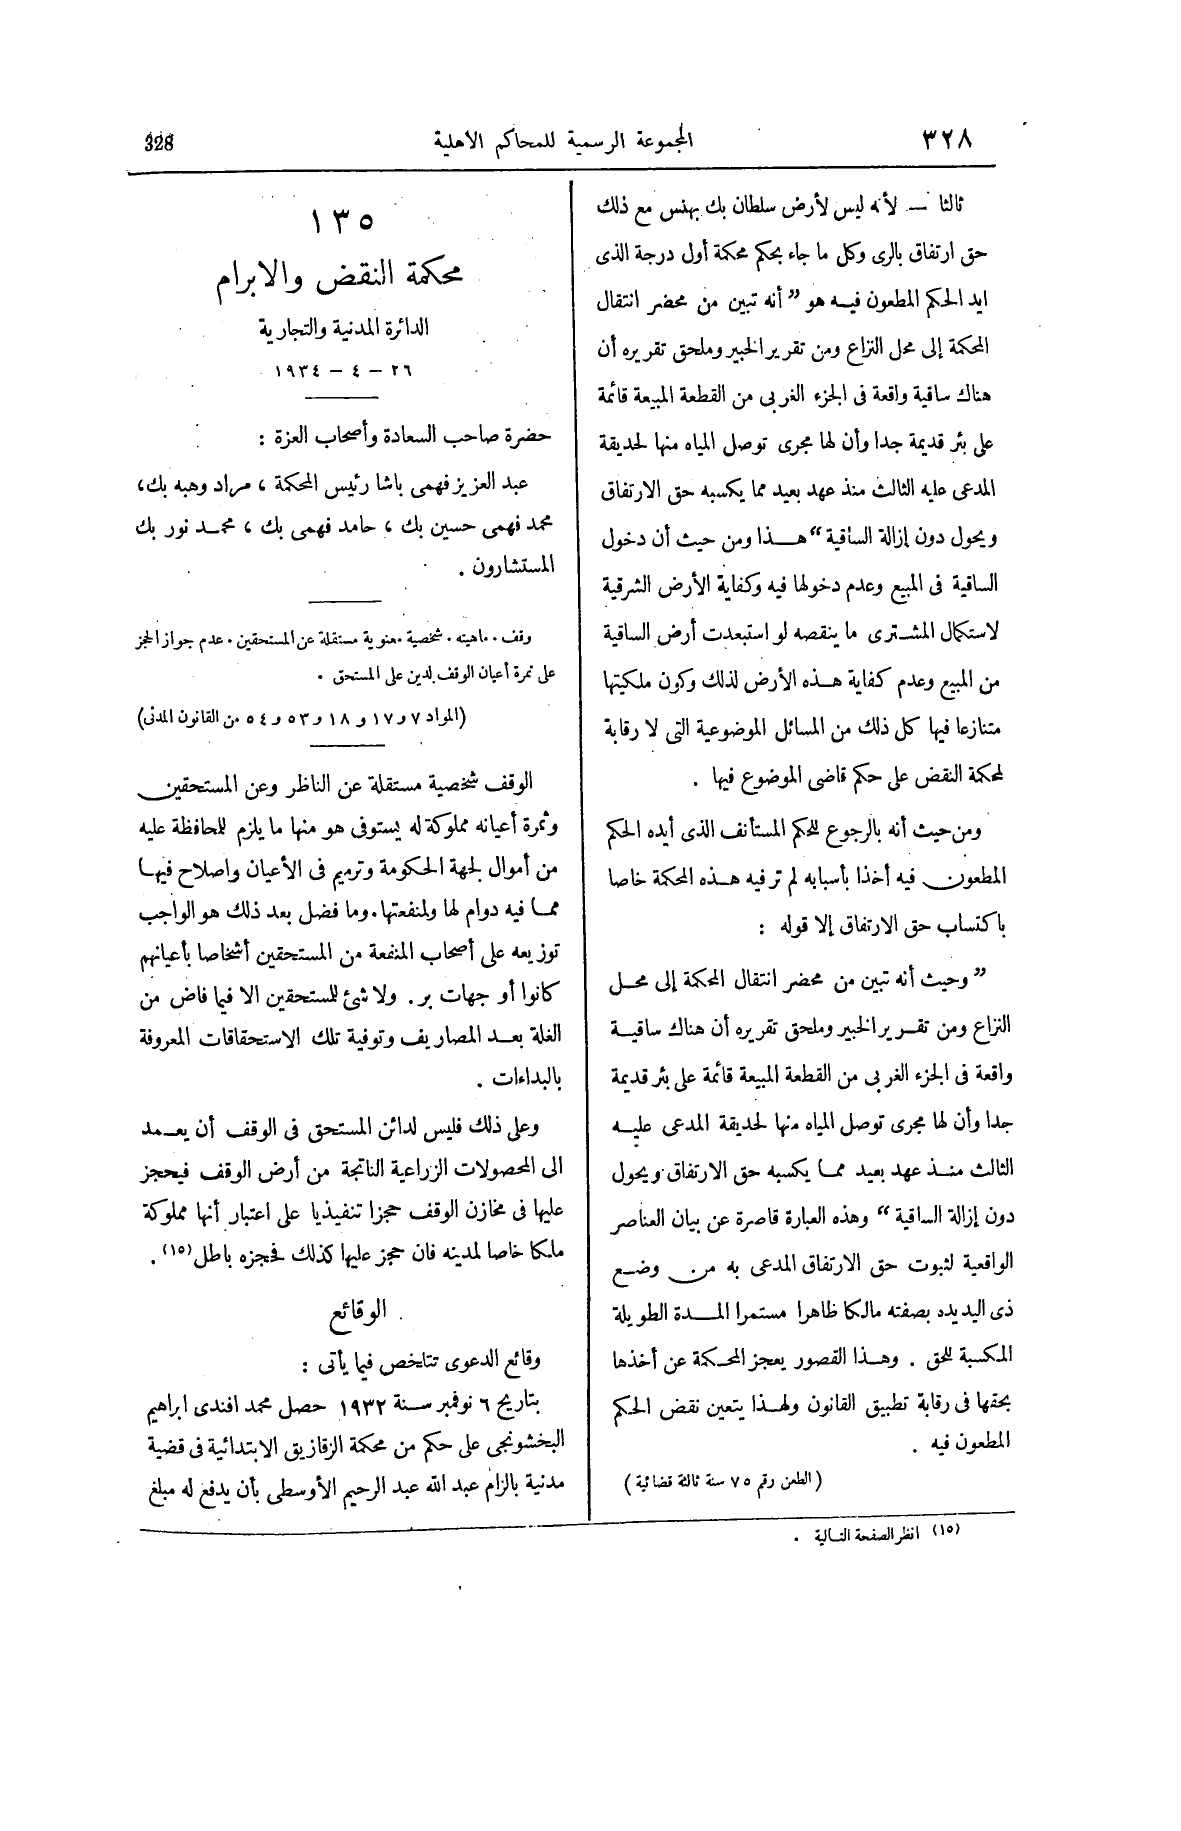 ٣٢٨
المجموعة الرسمية للمحاكم الاهلية
328
ثالثا — لأنه ليس لأرض سلطان بك بهنس مع ذلك
حق ارتفاق بالرى وكل ما جاء بحكم محكمة أول درجة الذى
ايد الحكم المطعون فيه هو ” أنه تبين من محضر انتقال
المحكمة إلى محل النزاع ومن تقرير الخبير وملحق تقريره أن
هناك ساقية واقعة فى الجزء الغربى من القطعة المبيعة قائمة
على بئر قديمة جدا وأن لها مجرى توصل المياه منها لحديقة
المدعى عليه الثالث منذ عهد بعيد مما يكسبه حق الارتفاق
ويحول دون إزالة الساقية “ هذا ومن حيث أن دخول
الساقية فى المبيع وعدم دخولها فيه وكفاية الأرض الشرقية
لاستكمال المشترى ما ينقصه لو استبعدت أرض الساقية
من المبيع وعدم كفاية هذه الأرض لذلك وكون ملكيتها
متنازعا فيها كل ذلك من المسائل الموضوعية التى لا رقابة
لمحكمة النقض على حكم قاضى الموضوع فيها .
ومن حيث أنه بالرجوع للحكم المستأنف الذى أيده الحكم
المطعون فيه أخذا بأسبابه لم تر فيه هذه المحكمة خاصا
باكتساب حق الارتفاق إلا قوله :
” وحيث أنه تبين من محضر انتقال المحكمة إلى محل
النزاع ومن تقرير الخبير وملحق تقريره أن هناك ساقية
واقعة فى الجزء الغربى من القطعة المبيعة قائمة على بئر قديمة
جدا وأن لها مجرى توصل المياه منها لحديقة المدعى عليه
الثالث منذ عهد بعيد مما يكسبه حق الارتفاق ويحول
دون إزالة الساقية “ وهذه العبارة قاصرة عن بيان العناصر
الواقعية لثبوت حق الارتفاق المدعى به من وضع
ذى اليد يده بصفته مالكا ظاهرا مستمرا المدة الطويلة
المكسبة للحق . وهذا القصور يعجز المحكمة عن أخذها
بحقها فى رقابة تطبيق القانون ولهذا يتعين نقض الحكم
المطعون فيه .
(الطعن رقم ٧٥ سنة ثالثة قضائية)
١٣٥
محكمة النقض والابرام
الدائرة المدنية والتجارية
٢٦ – ٤ – ١٩٣٤
حضرة صاحب السعادة وأصحاب العزة :
عبد العزيز فهمى باشا رئيس المحكمة ، مراد وهبه بك،
محمد فهمى حسين بك ، حامد فهمى بك ، محمد نور بك
المستشارون .
وقف . ماهيته . شخصية معنوية مستقلة عن المستحقين . عدم جواز الحجز
على ثمرة أعيان الوقف لدين على المستحق .
(المواد ٧ و ١٧ و ١٨ و ٥٣ و ٥٤ من القانون المدنى)
الوقف شخصية مستقلة عن الناظر وعن المستحقين
وثمرة أعيانه مملوكة له يستوفى هو منها ما يلزم للحافظة عليه
من أموال لجهة الحكومة وترميم فى الأعيان واصلاح فيها
مما فيه دوام لها ولمنفعتها. وما فضل بعد ذلك هو الواجب
توزيعه على أصحاب المنفعة من المستحقين أشخاصا بأعيانهم
كانوا أو جهات بر. ولا شئ للمستحقين الا فيما فاض من
الغلة بعد المصاريف وتوفية تلك الاستحقاقات المعروفة
بالبداءات .
وعلى ذلك فليس لدائن المستحق فى الوقف أن يعمد
الى المحصولات الزراعية الناتجة من أرض الوقف فيحجز
عليها فى مخازن الوقف حجزا تنفيذيا على اعتبار أنها مملوكة
ملكا خاصا لمدينه فان حجز عليها كذلك فحجزه باطل(١٥) .
الوقائع
وقائع الدعوى تتلخص فيما يأتى :
بتاريخ ٦ نوفمبر سنة ١٩٣٢ حصل محمد افندى ابراهيم
البخشونجى على حكم من محكمة الزقازيق الابتدائية فى قضية
مدنية بالزام عبد الله عبد الرحيم الأوسطى بأن يدفع له مبلغ
(١٥) انظر الصفحة التالية .